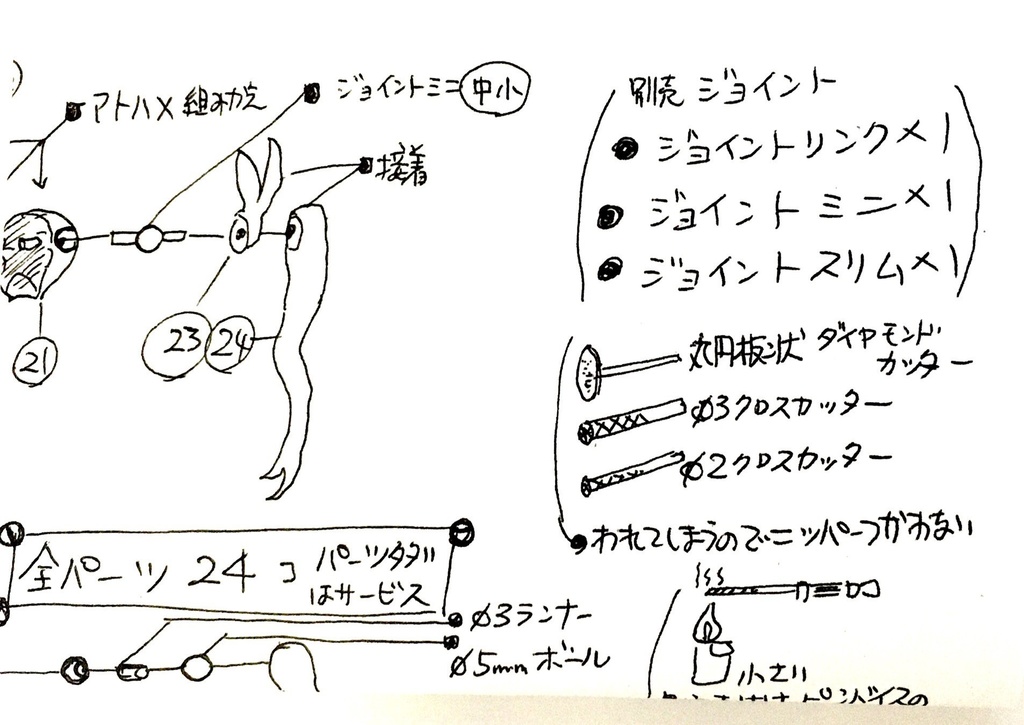 アトハメ組み換え
ジョイントミニ 中小
接着
21
23 24
全パーツ 24コ
パーツタグ
はサービス
ø3ランナー
ø5mmボール
別売 ジョイント
ジョイントリンク×1
ジョイントミニ×1
ジョイントスリム×1
丸円板状 ダイヤモンド
カッター
ø3クロスカッター
ø2クロスカッター
われてしまうのでニッパーつかわない
小さい